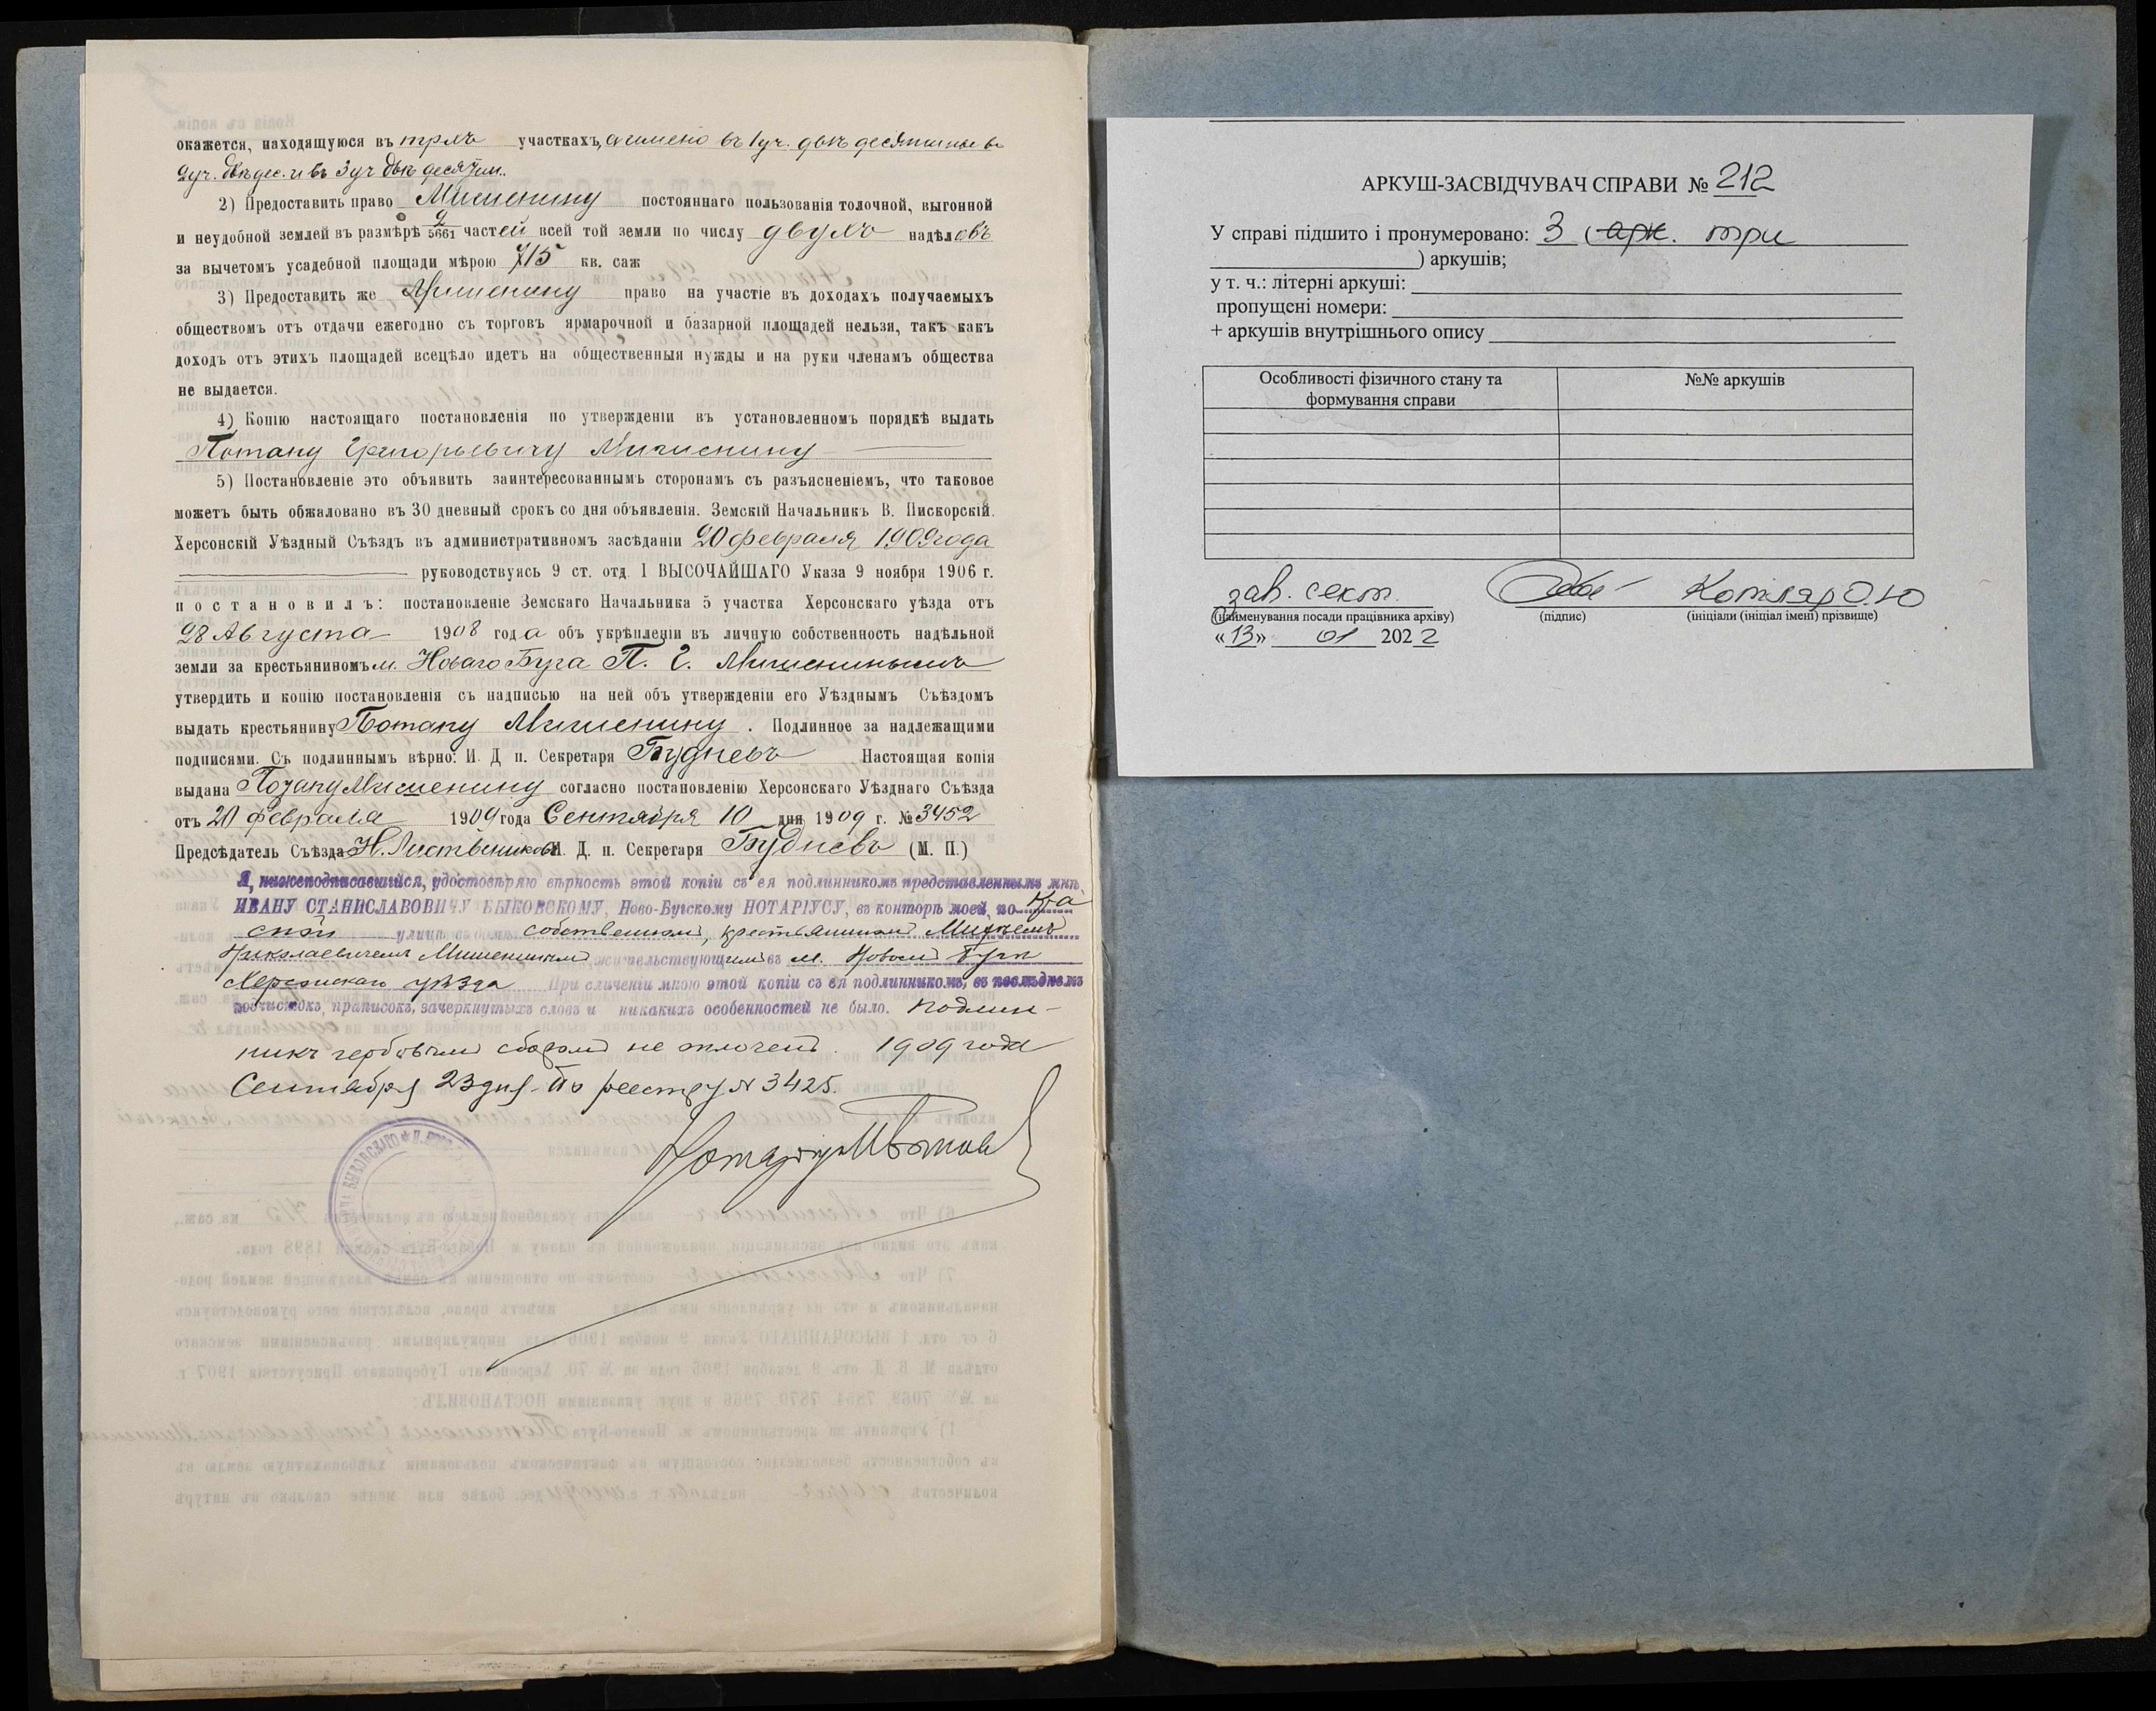 окажется, находящуюся въ трехъ участкахъ, а именно въ 1 уч. двѣ десятины въ
2 уч. двѣ дес. и въ 3 уч двѣ десятин.
2) Предоставить право Мишенину постояннаго пользованія толочной, выгонной
и неудобной землей въ размѣрѣ 2/5661 частей всей той земли по числу двухъ надѣловъ
за вычетомъ усадебной площади мѣрою 715 кв. саж
3) Предоставить же Мишенину право на участіе въ доходахъ получаемыхъ
обществомъ отъ отдачи ежегодно съ торговъ ярмарочной и базарной площадей нельзя, такъ какъ
доходъ отъ этихъ площадей всецѣло идетъ на общественныя нужды и на руки членамъ общества
не выдается.
4) Копію настоящаго постановленія по утвержденіи въ установленномъ порядкѣ выдать
Потапу Григорьевичу Мишенину
5) Постановленіе это объявить заинтересованнымъ сторонамъ съ разъясненіемъ, что таковое
можетъ быть обжаловано въ 30 дневный срокъ со дня объявленія. Земскій Начальникъ В. Пискорскій.
Херсонскій Уѣздный Съѣздъ въ административномъ засѣданіи 20 февраля 1909 года
руководствуясь 9 ст. отд. I ВЫСОЧАЙШАГО Указа 9 ноября 1906 г.
постановилъ: постановленіе Земскаго Начальника 5 участка Херсонскаго уѣзда отъ
28 Августа 1908 года объ укрѣпленіи въ личную собственность надѣльной
земли за крестьяниномъ м. Новаго Буга П. Г. Мишенинымъ
утвердить и копію постановленія съ надписью на ней объ утвержденіи его Уѣзднымъ Съѣздомъ
выдать крестьянину Потапу Мишенину. Подлинное за надлежащими
подписями. Съ подлиннымъ вѣрно: И. Д п. Секретаря Будневъ Настоящая копія
выдана Потапу Мишенину согласно постановленію Херсонскаго Уѣзднаго Съѣзда
отъ 20 февраля 1909 года Сентября 10 дня 1909 г. № 3452
Предсѣдатель Съѣзда Н. Листвениковъ И. Д. п. Секретаря Будневъ (М. П.)
Я, нижеподписавшійся, удостовѣряю вѣрность этой копіи съ ея подлинникомъ представленнымъ мнѣ
ИВАНУ СТАНИСЛАВОВИЧУ БЫКОВСКОМУ, Ново-Бугскому НОТАРІУСУ, въ конторѣ моей, по Кра
сной улицѣ собственномъ, крестьяниномъ
Николаевичемъ Мишенинымъ жительствующимъ въ м. Новомъ Бугѣ
Херсонскаго уѣзда При сличеніи мною этой копіи съ ея подлинникомъ, въ послѣднемъ
подчистокъ, приписокъ, зачеркнутыхъ словъ и никакихъ особенностей не было. Подлин-
никъ гербовымъ сборомъ не оплоченъ. 1909 года
Сентября 23 дня. По реестру № 3425.
Нотаріусъ
АРКУШ-ЗАСВІДЧУВАЧ СПРАВИ № 212
У справі підшито і пронумеровано: 3 (арк. три
) аркушів;
у т. ч.: літерні аркуші:
пропущені номери:
+ аркушів внутрішнього опису
Особливості фізичного стану та формування справи
№№ аркушів
зав. сект. Котляр О.Ю
(найменування посади працівника архіву) (підпис) (ініціали (ініціал імені) прізвище)
«13» 01 2022